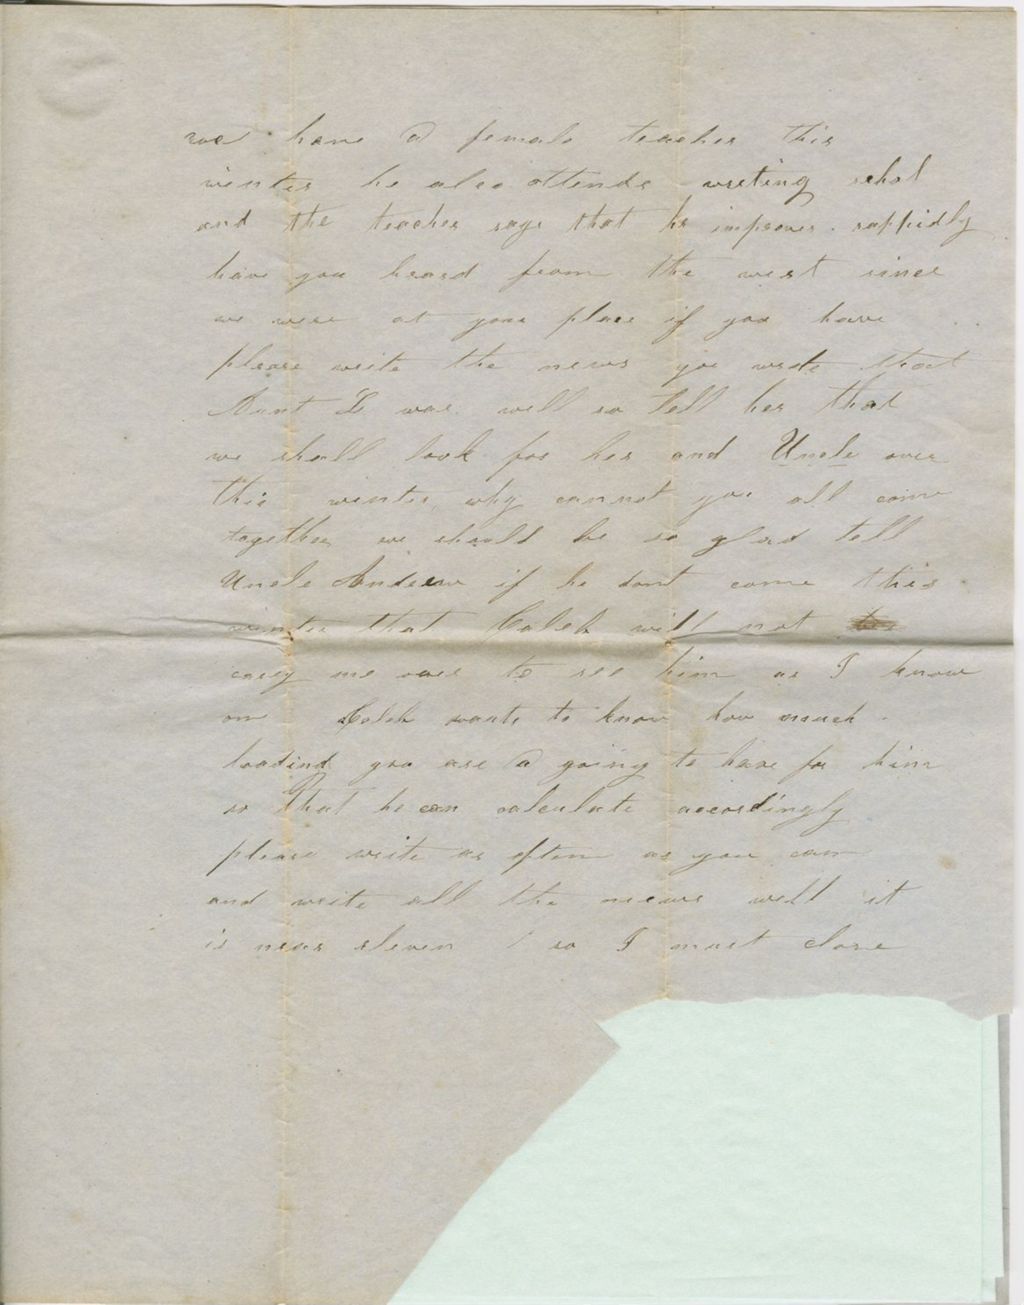 we have a female teacher this
winter he also attends writing schol
and the teacher says that he improves rappidly
have you heard from the west since
we were at your place if you have
please write the news you wrote that
Aunt L was well so tell her that
we shall look for her and Uncle over
this winter why cannot you all come
together we should be so glad tell
Uncle Andrew if he dont come this
winter that Caleb will not
carey me over to see him as I know
on Caleb wants to know how much
you are a going to have for him
so that he can calculate accordingly
please write as often as you can
and write all the news well it
is near eleven so I must close